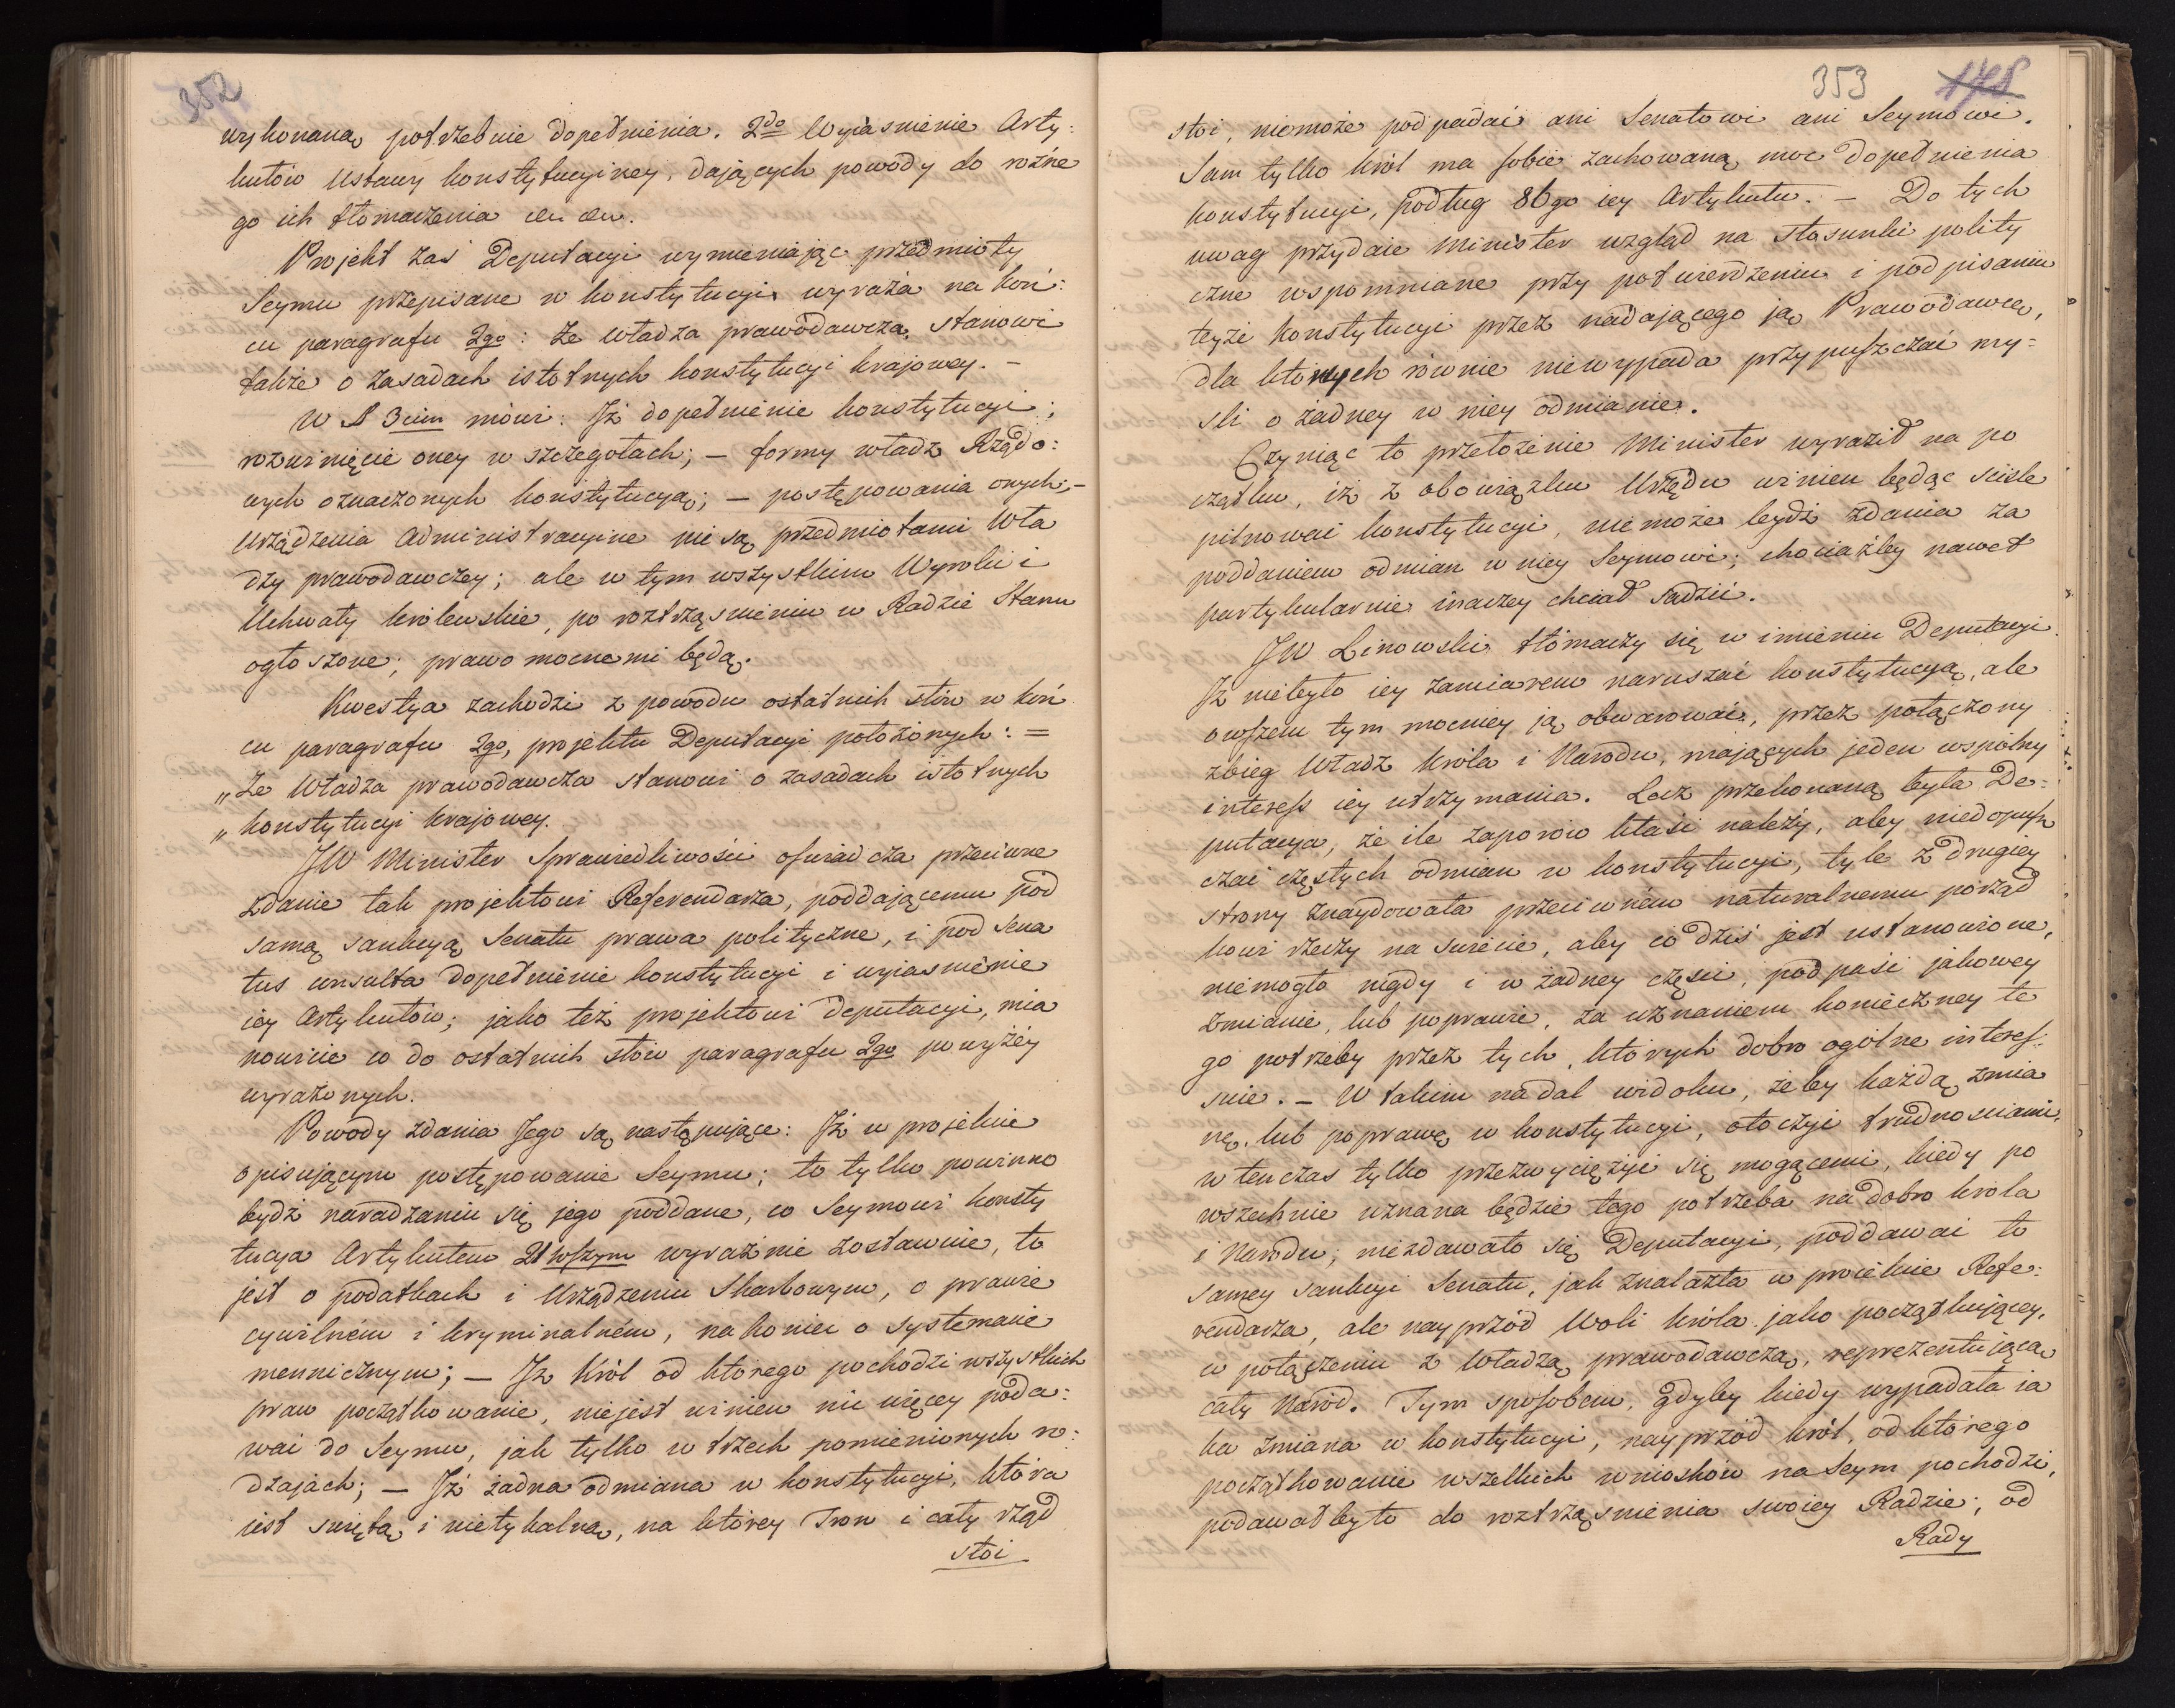 352
wykonaną potrzebnie dopełnienia. 2do Wyiasnienie Arty:
kułów Ustawy konstytucyiney, dających powody do rożne
go ich tłomaczenia etc etc.
Projekt zaś Deputacyi wymieniając przedmioty
Seymu przepisane w konstytucyi, wyraża na koń:
cu paragrafu 2go: że władza prawodawcza, stanowi
także o zasadach istotnych konstytucyi krajowey. –
W § 3cim mówi: Iż dopełnienie konstytucyi;
rozwinięcie oney w szczegołach; – formy władz Rządo:
wych oznaczonych konstytucyą; – postępowania onych; –
Urządzenia Administracyine nie są przedmiotami Wła
dzy prawodawczey; ale w tym wszystkim Wyroki i
Uchwały królewskie, po roztrząsnieniu w Radzie Stanu
ogłoszone; prawomocnemi będą.
Kwestya zachodzi z powodu ostatnich słów w koń
cu paragrafu 2go, projektu Deputacyi położonych: =
„Że Władza prawodawcza stanowi o zasadach istotnych
„konstytucyi krajowey.
JW Minister Sprawiedliwości oświadcza przeciwne
zdanie tak projektowi Referendarza, poddającemu pod
samą sankcyą Senatu prawa polityczne, i pod sena
tus consulta dopełnienie konstytucyi i wyiasnienie
iey Artykułów; jako też projektowi Deputacyi, mia
nowicie co do ostatnich słów paragrafu 2go powyżéy
wyrażonych.
Powody zdania Jego są następujące: Iż w projekcie
opisującym postępowanie Seymu; to tylko powinno
bydź naradzaniu się jego poddane, co Seymowi konsty
tucya Artykułem 21wszym wyraźnie zostawuie, to
jest o podatkach i Urządzeniu Skarbowym, o prawie
cywilném i kryminalném, nakoniec o systemacie
mennicznym; – Iż Król od którego pochodzi wszystkich
praw początkowanie, niejest winien nic więcey poda:
wać do Seymu, jak tylko w trzech pomienionych ro:
dzajach; – Iż żadna odmiana w konstytucyi, która
iest swiętą i nietykalną, na którey Tron i cały rząd
stoi
353 178
stoi, niemoże podpadać ani Senatowi ani Seymowi.
Sam tylko król ma sobie zachowaną moc dopełnienia
konstytucyi, podług 86go iey Artykułu. – Do tych
uwag przydaie Minister wzgląd na stosunki polity
czne wspomniane przy potwierdzeniu i podpisaniu
teyże konstytucyi przez nadającego ją Prawodawcę,
dla których równie niewypada przypuszczać my:
sli o żadney w niey odmianie.
Czyniąc to przełożenie Minister wyraził na po
czątku, iż z obowiązku Urzędu winien będąc scisle
pilnować konstytucyi, niemoże bydź zdania za
poddaniem odmian w niey Seymowi; chociażby nawet
partykularnie inaczey chciał sądzić.
JW Linowski tłómaczy się w imieniu Deputacyi
Iż niebyło iey zamiarem naruszać konstytucyą, ale
owszem tym mocniey ją obwarować, przez połączony
zbieg Władz króla i Narodu, mających jeden wspólny
interess iey utrzymania. Lecz przekonaną była De=
putacya, że ile zaporów kłaść należy, aby niedopusz
czać częstych odmian w konstytucyi, tyle z drugiey
strony znaydowała przeciwném naturalnemu porząd
kowi rzeczy na swiecie, aby co dziś jest ustanowione,
niemogło nigdy i w żadney części, podpaść jakowey
zmianie, lub poprawie, za uznaniem konieczney te
go potrzeby przez tych, których dobro ogólne interes:
suie. – W takim nadal widoku, żeby każdą zmia
nę, lub poprawę w konstytucyi, otoczyć trudnosciami,
w tenczas tylko przezwyciężyć się mogącemi, kiedy po
wszechnie uznana będzie tego potrzeba na dobro króla
i Narodu; niezdawało się Deputacyi, poddawać to
samey sankcyi Senatu, jak znalazła w proiekcie Refe:
rendarza, ale nayprzód Woli króla jako początkującey,
w połączeniu z Władzą prawodawczą, reprezentującą
cały Naród. Tym sposobem, gdyby kiedy wypadała ia
ka zmiana w konstytucyi, nayprzód król, od którego
początkowanie wszelkich wniosków na Seym pochodzi,
podawałby to do roztrząsnienia swoiey Radzie; od
Rady